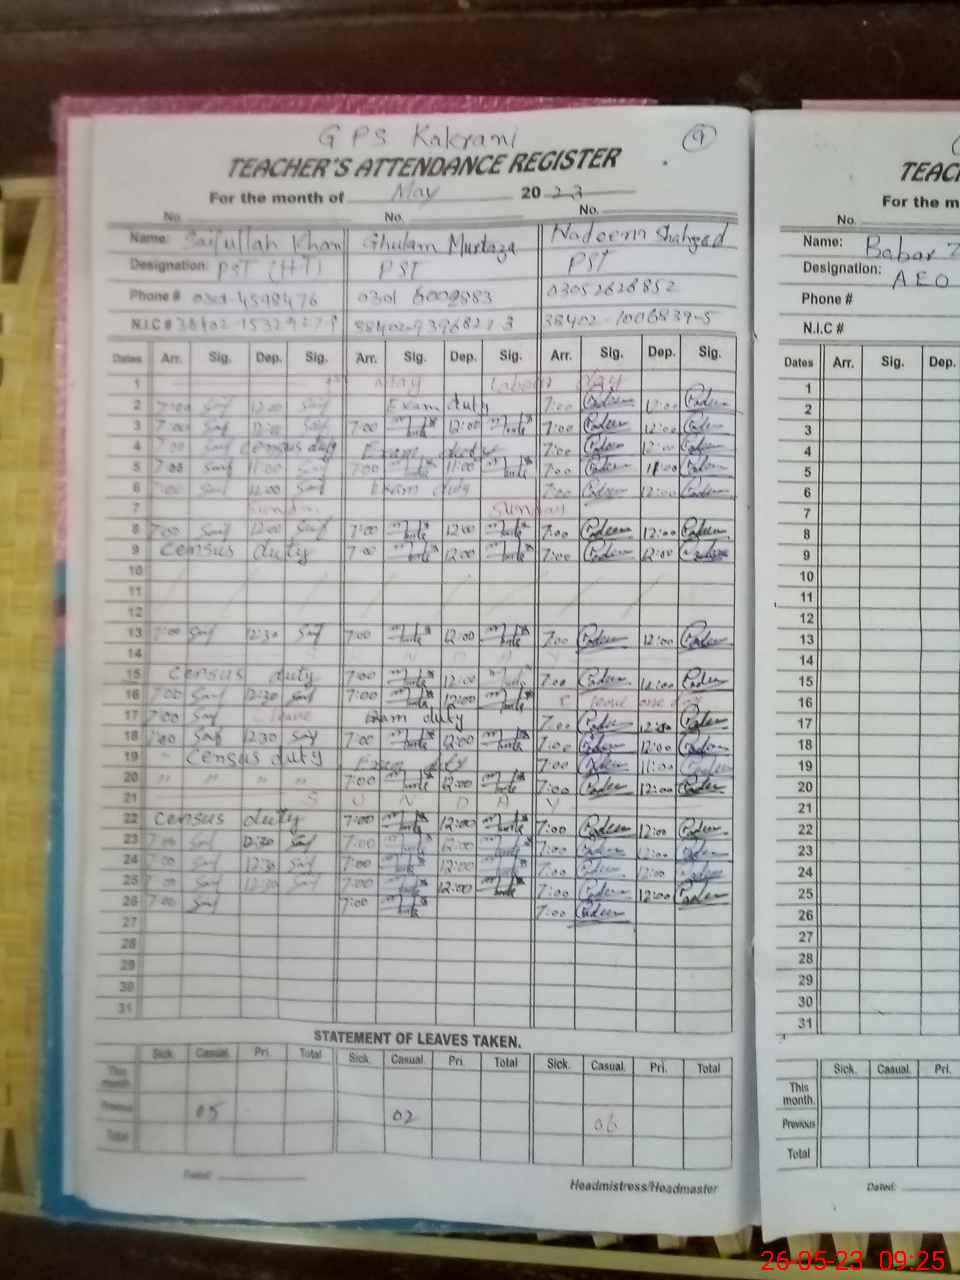 GPS Kakrani 9
TEACHER'S ATTENDANCE REGISTER
For the month of May 2023
No. No. No.
Name: Saifullah Khan Ghulam Murtaza Nadeem Shahzad
Designation: PST (HT) PST PST
Phone # 0301 6002883 03052626852
N.I.C # 38402- 38402-1006839-5
Dates Arr. Sig. Dep. Sig. Arr. Sig. Dep. Sig. Arr. Sig. Dep. Sig.
1 1st May Labour day
2 7:00 Saif 12:00 Saif Exam duty 7:00 12:00
3 7:00 Saif 12:00 Saif 7:00 12:00 7:00 12:00
4 7:00 Saif Census duty Exam duty 7:00 12:00
5 7:00 Saif 11:00 Saif 7:00 11:00 7:00 11:00
6 7:00 Saif 12:00 Saif Exam duty 7:00 12:00
7 Sunday Sunday
8 7:00 Saif 12:00 Saif 7:00 12:00 7:00 12:00
9 Census duty 7:00 12:00 7:00 12:00
10
11
12
13 7:00 Saif 12:30 Saif 7:00 12:00 7:00 12:00
14 S U N D A Y
15 Census duty 7:00 12:00 7:00 12:00
16 7:00 Saif 12:30 Saif 7:00 12:00 C leave one day
17 7:00 Saif leave Exam duty 7:00 12:00
18 7:00 Saif 12:30 Saif 7:00 12:00 7:00 12:00
19 Census duty Exam duty 7:00 11:00
20 " " " " 7:00 12:00 7:00 12:00
21 S U N D A Y
22 Census duty 7:00 12:00 7:00 12:00
23 7:00 Saif 12:30 Saif 7:00 12:00 7:00 12:00
24 7:00 Saif 12:30 Saif 7:00 12:00 7:00 12:00
25 7:00 Saif 12:30 Saif 7:00 12:00 7:00 12:00
26 7:00 Saif 7:00 7:00
27
28
29
30
31
STATEMENT OF LEAVES TAKEN.
Sick. Casual. Pri. Total Sick. Casual. Pri. Total Sick. Casual. Pri. Total
This month.
Previous 05 02 06
Total
Dated:
Headmistress/Headmaster
For the m
No.
Name: Babar
Designation: AEO
Phone #
N.I.C #
Dates Arr. Sig. Dep.
1
2
3
4
5
6
7
8
9
10
11
12
13
14
15
16
17
18
19
20
21
22
23
24
25
26
27
28
29
30
31
Sick. Casual. Pri.
This month.
Previous
Total
Dated:
26-05-23 09:25